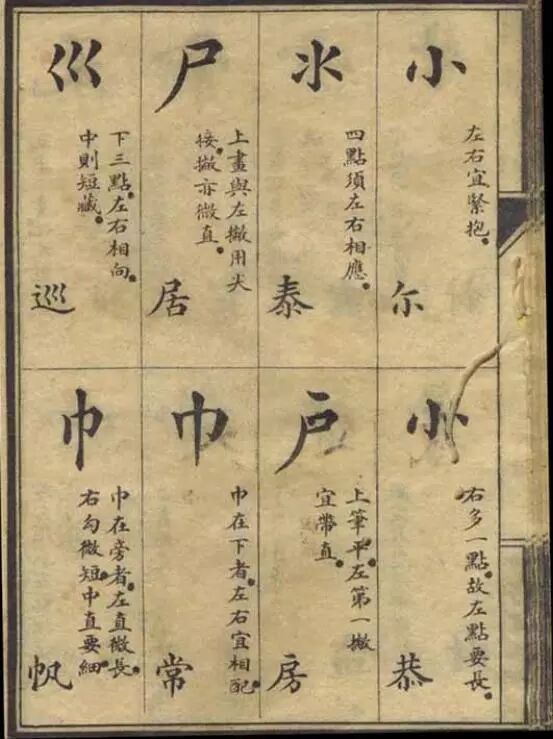 小
左右宜緊抱。
尓
氺
四點須左右相應。
泰
尸
上畫與左撇用尖
接。撇亦微直。
居
巛
下三點。左右相向。
中則短藏。
巡
㣺
右多一點。故左點要長。
恭
戶
上筆平。左第一撇
宜帶直。
房
巾
巾在下者。左右宜相配。
常
巾
巾在旁者。左直微長。
右勾微短。中直要細。
帆